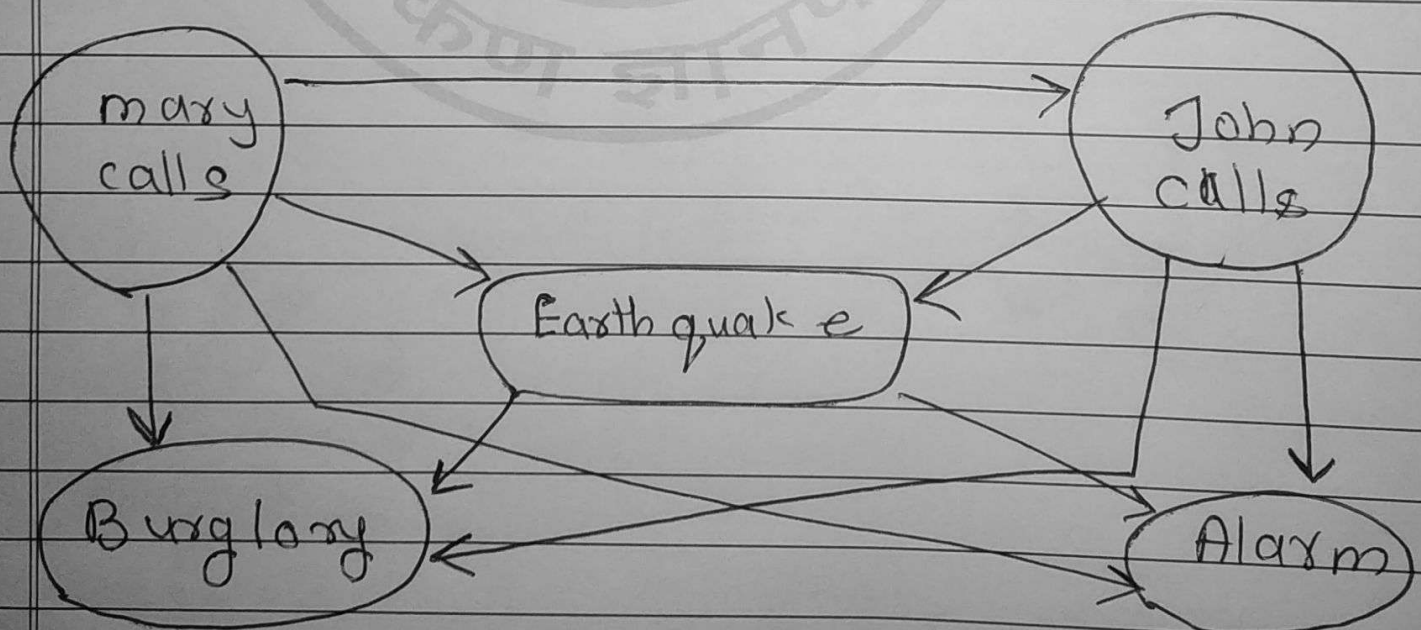 mary
calls
John
calls
Earthquake
Burglory
Alarm